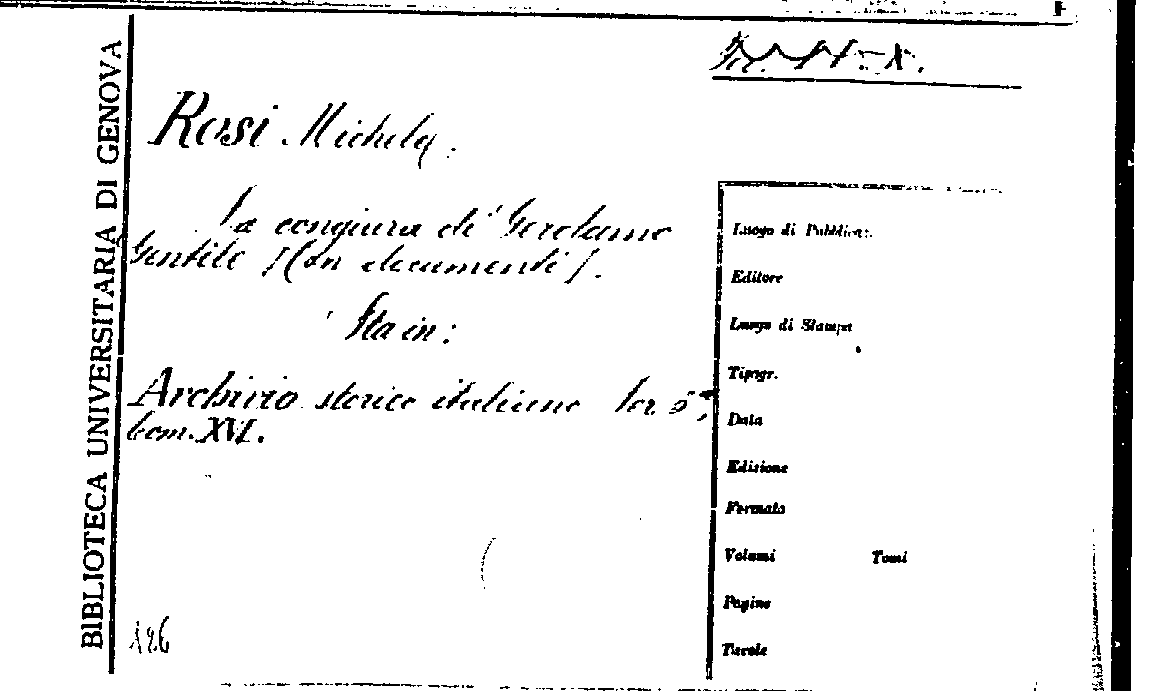 BIBLIOTECA UNIVERSITARIA DI GENOVA
Rosi Michele.
La congiura di Gerolamo
Gentile /(Con documenti/.
Sta in:
Archivio storico italiano Ser 5ª,
tom. XVI.
126
Luogo di Pubblicaz.
Editore
Luogo di Stampa
Tipogr.
Data
Edizione
Formato
Volumi Tomi
Pagine
Tavole